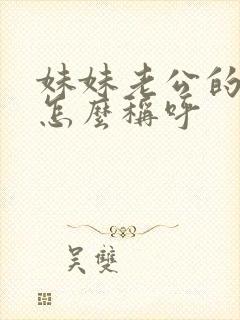 妹妹老公的
怎麼稱呼
吴雙